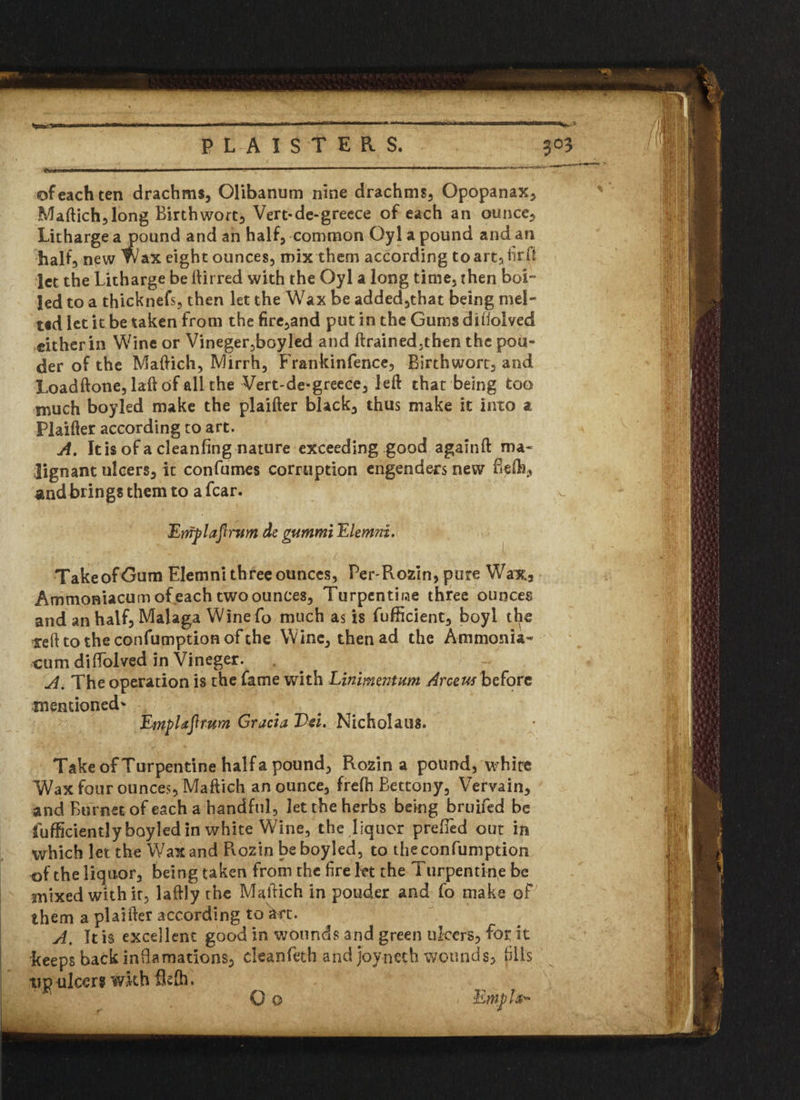 PLAISTERS. 303
of each ten drachms, Olibanum nine drachms, Opopanax,
Maſtich, long Birthwort, Vert-de-greece of each an ounce,
Litharge a pound and an half, common Oyl a pound and an
half, new Wax eight ounces, mix them according to art, firſt
let the Litharge be ſtirred with the Oyl a long time, then boi-
led to a thickneſs, then let the Wax be added, that being mel-
ted let it be taken from the fire, and put in the Gums diſſolved
either in Wine or Vineger, boyled and ſtrained, then the pou-
der of the Maſtich, Mirrh, Frankinſence, Birthwort, and
Loadſtone, laſt of all the Vert-de-greece, leſt that being too
much boyled make the plaiſter black, thus make it into a
Plaiſter according to art.
A. It is of a cleanſing nature exceeding good againſt ma-
lignant ulcers, it conſumes corruption engenders new fleſh,
and brings them to a ſcar.
Emplaſtrum de gummi Elemni.
Take of Gum Elemni three ounces, Per-Rozin, pure Wax,
Ammoniacum of each two ounces, Turpentine three ounces
and an half, Malaga Wine ſo much as is ſufficient, boyl the
reſt to the conſumption of the Wine, then ad the Ammonia-
cum diſſolved in Vineger.
A. The operation is the ſame with Linimentum Arceus before
mentioned.
Emplaſtrum Gracia Dei. Nicholaus.
Take of Turpentine half a pound, Rozin a pound, white
Wax four ounces, Maſtich an ounce, freſh Bettony, Vervain,
and Burnet of each a handful, let the herbs being bruiſed be
ſufficiently boyled in white Wine, the liquor preſſed out in
which let the Wax and Rozin be boyled, to the conſumption
of the liquor, being taken from the fire let the Turpentine be
mixed with it, laſtly the Maſtich in pouder and ſo make of
them a plaiſter according to art.
A. It is excellent good in wounds and green ulcers, for it
keeps back inflamations, cleanſeth and joyneth wounds, fills
up ulcers with fleſh.
O o Empla-